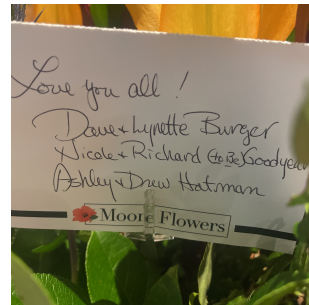 Love you all !
Dave + Lynette Burger
Nicole + Richard (to Be) Goodyear
Ashley + Drew Hatman
Moore Flowers